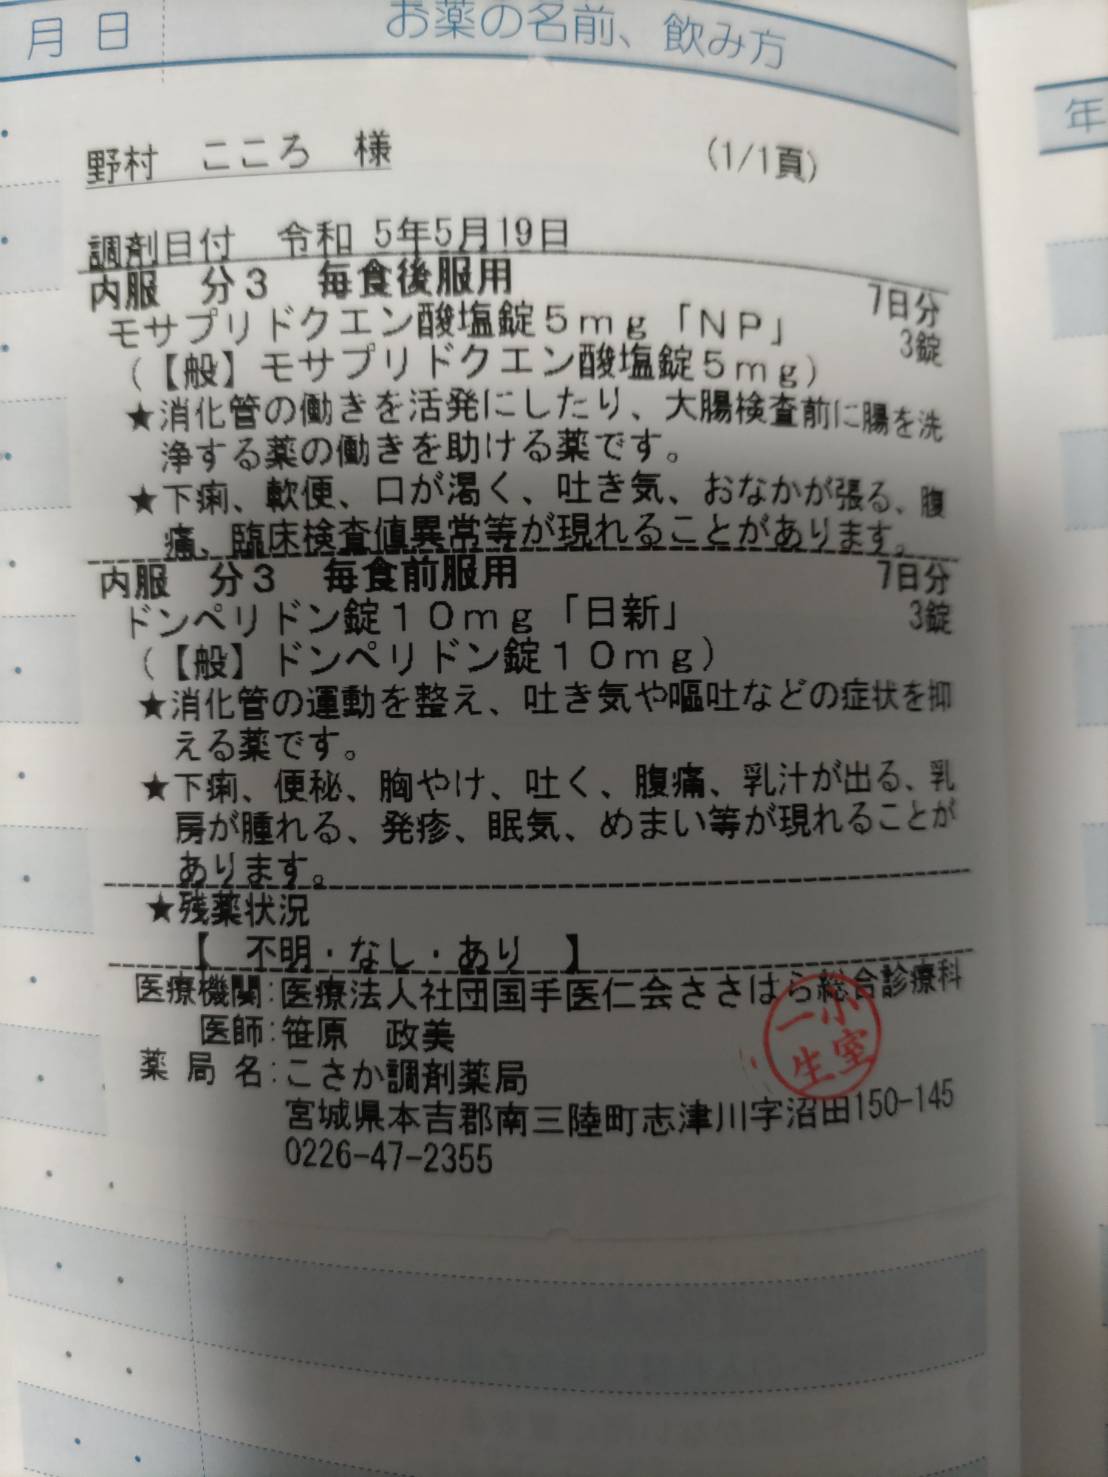 月 日
お薬の名前、飲み方
年
野村 こころ 様
(1/1頁)
調剤日付 令和 5年5月19日
内服 分3 毎食後服用
7日分
モサプリドクエン酸塩錠5mg「NP」
3錠
(【般】モサプリドクエン酸塩錠5mg)
★消化管の働きを活発にしたり、大腸検査前に腸を洗
浄する薬の働きを助ける薬です。
★下痢、軟便、口が渇く、吐き気、おなかが張る、腹
痛、臨床検査値異常等が現れることがあります。
内服 分3 毎食前服用
7日分
ドンペリドン錠10mg「日新」
3錠
(【般】ドンペリドン錠10mg)
★消化管の運動を整え、吐き気や嘔吐などの症状を抑
える薬です。
★下痢、便秘、胸やけ、吐く、腹痛、乳汁が出る、乳
房が腫れる、発疹、眠気、めまい等が現れることが
あります。
★残薬状況
【 不明・なし・あり 】
医療機関:医療法人社団国手医仁会ささはら総合診療科
医師:笹原 政美
小室
一生
薬 局 名:こさか調剤薬局
宮城県本吉郡南三陸町志津川字沼田150-145
0226-47-2355